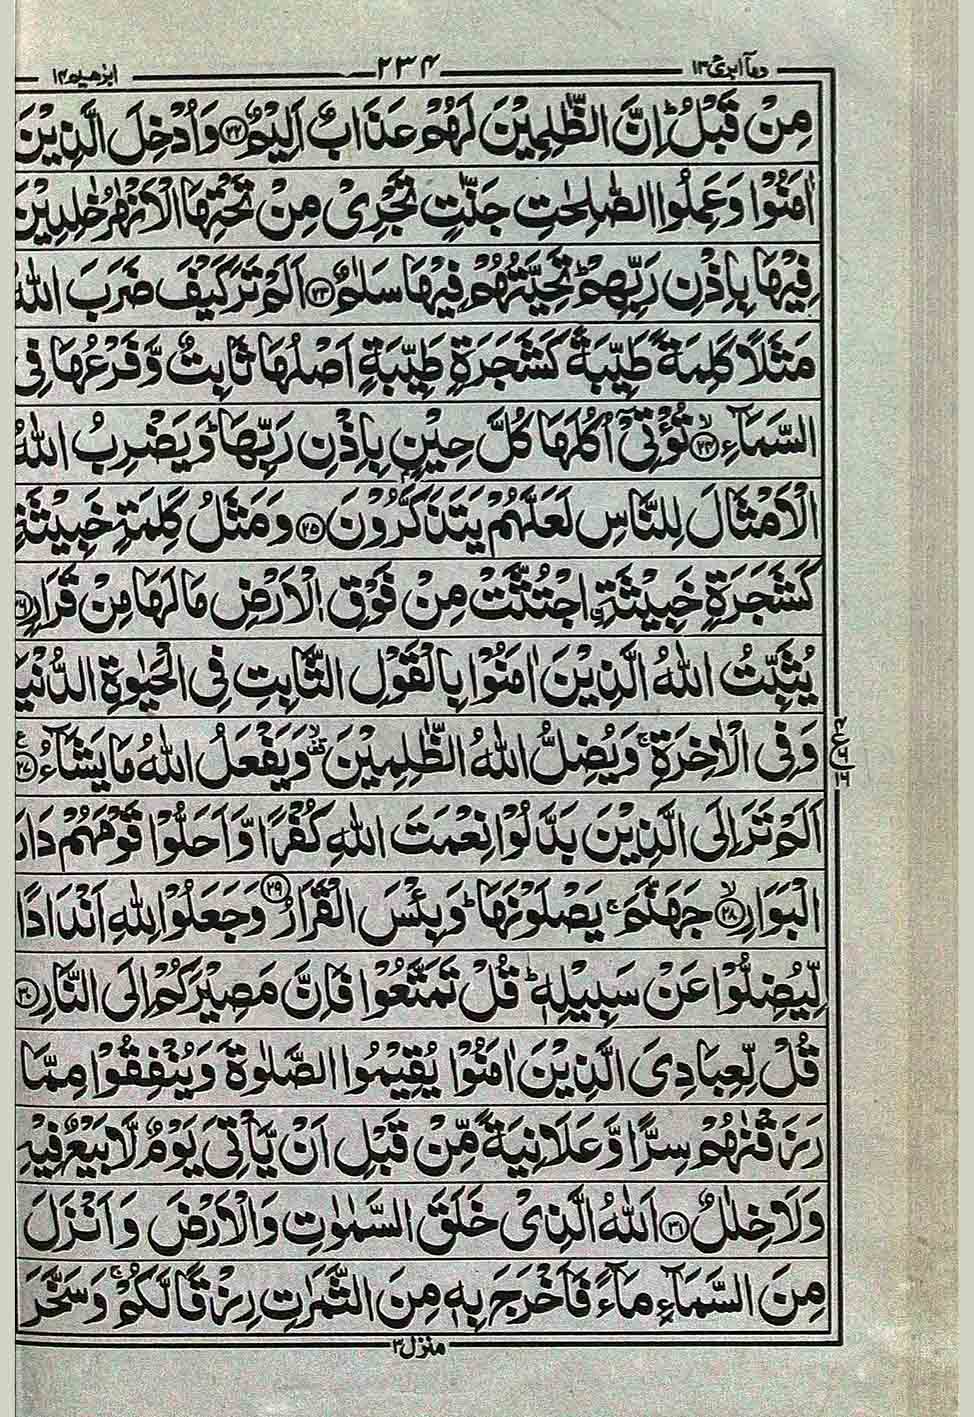 ابرٰهیم ۱۴ ۲۳۴ ومآ ابرئ ۱۳
مِنْ قَبْلُ ؕ اِنَّ الظّٰلِمِیْنَ لَهُمْ عَذَابٌ اَلِیْمٌ ﴿۲۲﴾ وَاُدْخِلَ الَّذِیْنَ
اٰمَنُوْا وَعَمِلُوا الصّٰلِحٰتِ جَنّٰتٍ تَجْرِیْ مِنْ تَحْتِهَا الْاَنْهٰرُ خٰلِدِیْنَ
فِیْهَا بِاِذْنِ رَبِّهِمْ ؕ تَحِیَّتُهُمْ فِیْهَا سَلٰمٌ ﴿۲۳﴾ اَلَمْ تَرَ كَیْفَ ضَرَبَ اللّٰهُ
مَثَلًا كَلِمَةً طَیِّبَةً كَشَجَرَةٍ طَیِّبَةٍ اَصْلُهَا ثَابِتٌ وَّفَرْعُهَا فِی
السَّمَآءِ ﴿ۙ۲۴﴾ تُؤْتِیْۤ اُكُلَهَا كُلَّ حِیْنٍۭ بِاِذْنِ رَبِّهَا ؕ وَیَضْرِبُ اللّٰهُ
الْاَمْثَالَ لِلنَّاسِ لَعَلَّهُمْ یَتَذَكَّرُوْنَ ﴿۲۵﴾ وَمَثَلُ كَلِمَةٍ خَبِیْثَةٍ
كَشَجَرَةٍ خَبِیْثَةِ ِ۟اجْتُثَّتْ مِنْ فَوْقِ الْاَرْضِ مَا لَهَا مِنْ قَرَارٍ ﴿۲۶﴾
یُثَبِّتُ اللّٰهُ الَّذِیْنَ اٰمَنُوْا بِالْقَوْلِ الثَّابِتِ فِی الْحَیٰوةِ الدُّنْیَا
وَفِی الْاٰخِرَةِ ۚ وَیُضِلُّ اللّٰهُ الظّٰلِمِیْنَ ۙ۫ وَیَفْعَلُ اللّٰهُ مَا یَشَآءُ ﴿۲۷﴾ ع
اَلَمْ تَرَ اِلَی الَّذِیْنَ بَدَّلُوْا نِعْمَتَ اللّٰهِ كُفْرًا وَّاَحَلُّوْا قَوْمَهُمْ دَارَ
الْبَوَارِ ﴿ۙ۲۸﴾ جَهَنَّمَ ۚ یَصْلَوْنَهَا ؕ وَبِئْسَ الْقَرَارُ ﴿۲۹﴾ وَجَعَلُوْا لِلّٰهِ اَنْدَادًا
لِّیُضِلُّوْا عَنْ سَبِیْلِهٖ ؕ قُلْ تَمَتَّعُوْا فَاِنَّ مَصِیْرَكُمْ اِلَی النَّارِ ﴿۳۰﴾
قُلْ لِّعِبَادِیَ الَّذِیْنَ اٰمَنُوْا یُقِیْمُوا الصَّلٰوةَ وَیُنْفِقُوْا مِمَّا
رَزَقْنٰهُمْ سِرًّا وَّعَلَانِیَةً مِّنْ قَبْلِ اَنْ یَّاْتِیَ یَوْمٌ لَّا بَیْعٌ فِیْهِ
وَلَا خِلٰلٌ ﴿۳۱﴾ اَللّٰهُ الَّذِیْ خَلَقَ السَّمٰوٰتِ وَالْاَرْضَ وَاَنْزَلَ
مِنَ السَّمَآءِ مَآءً فَاَخْرَجَ بِهٖ مِنَ الثَّمَرٰتِ رِزْقًا لَّكُمْ ۚ وَسَخَّرَ
منزل ۳